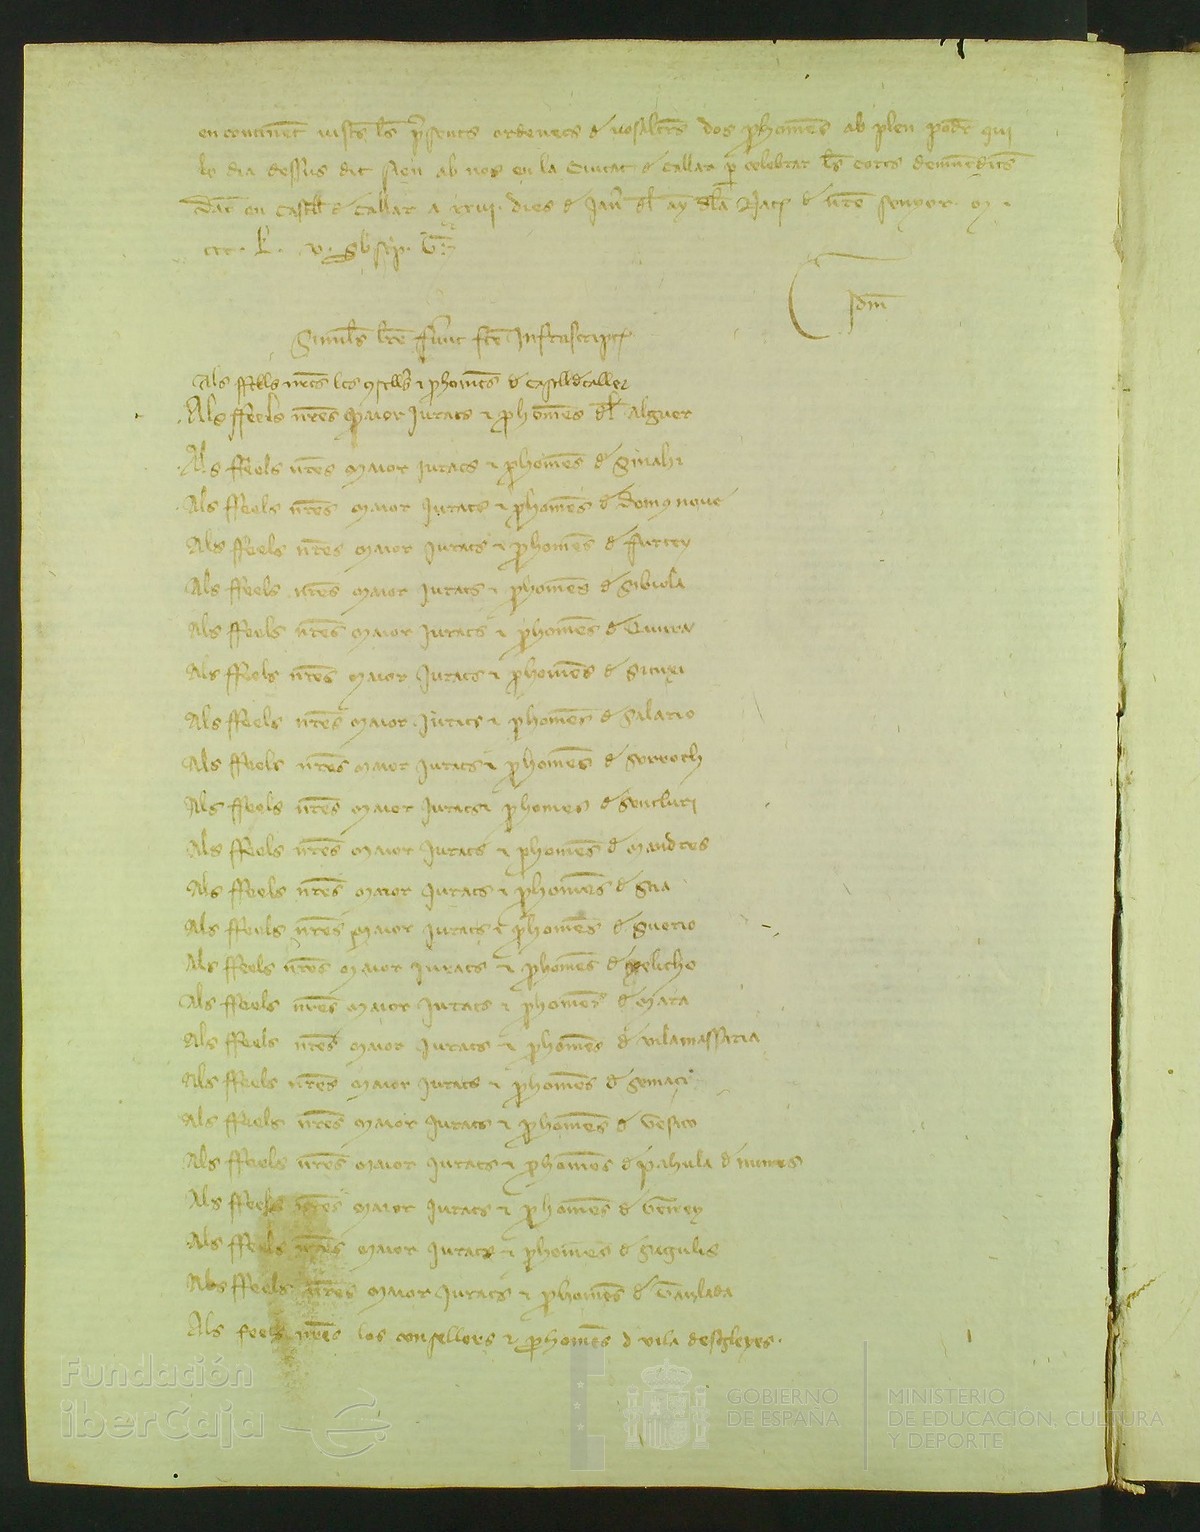 en continent vistes les presents ordenets de vosaltres dos prohomens ab plen poder qui
lo dia dessus dit sien ab nos en la Ciutat de Callar per celebrar les corts demuntdites
Dat en Castell de Callar a XXVI dies de Janer del any dela Nat de nostre senyor M
CCC L V
Idem
Similes littere fuerunt facte Infrascriptis
Als ffeels nostres los consellers e prohomens de Castell de Caller
Als ffeels nostres Maior Jurats e prohomens del Alguer
Als ffeels nostres Maior Jurats e prohomens de Sinahi
Als ffeels nostres Maior Jurats e prohomens de Domusnoue
Als ffeels nostres Maior Jurats e prohomens de Furtey
Als ffeels nostres Maior Jurats e prohomens de Sibiola
Als ffeels nostres Maior Jurats e prohomens de
Als ffeels nostres Maior Jurats e prohomens de
Als ffeels nostres Maior Jurats e prohomens de Salario
Als ffeels nostres Maior Jurats e prohomens de Serroch
Als ffeels nostres Maior Jurats e prohomens de Sentluri
Als ffeels nostres Maior Jurats e prohomens de Mandres
Als ffeels nostres Maior Jurats e prohomens de
Als ffeels nostres Maior Jurats e prohomens de Suerio
Als ffeels nostres Maior Jurats e prohomens de
Als ffeels nostres Maior Jurats e prohomens de Mara
Als ffeels nostres Maior Jurats e prohomens de vilamassaria
Als ffeels nostres Maior Jurats e prohomens de
Als ffeels nostres Maior Jurats e prohomens de Gesico
Als ffeels nostres Maior Jurats e prohomens de pahula de
Als ffeels nostres Maior Jurats e prohomens de
Als ffeels nostres Maior Jurats e prohomens de Sigulis
Als ffeels nostres Maior Jurats e prohomens de
Als feels nostres los consellers e prohomens d vila desgleyes
Fundación
iberCaja
GOBIERNO
DE ESPAÑA
MINISTERIO
DE EDUCACIÓN, CULTURA
Y DEPORTE